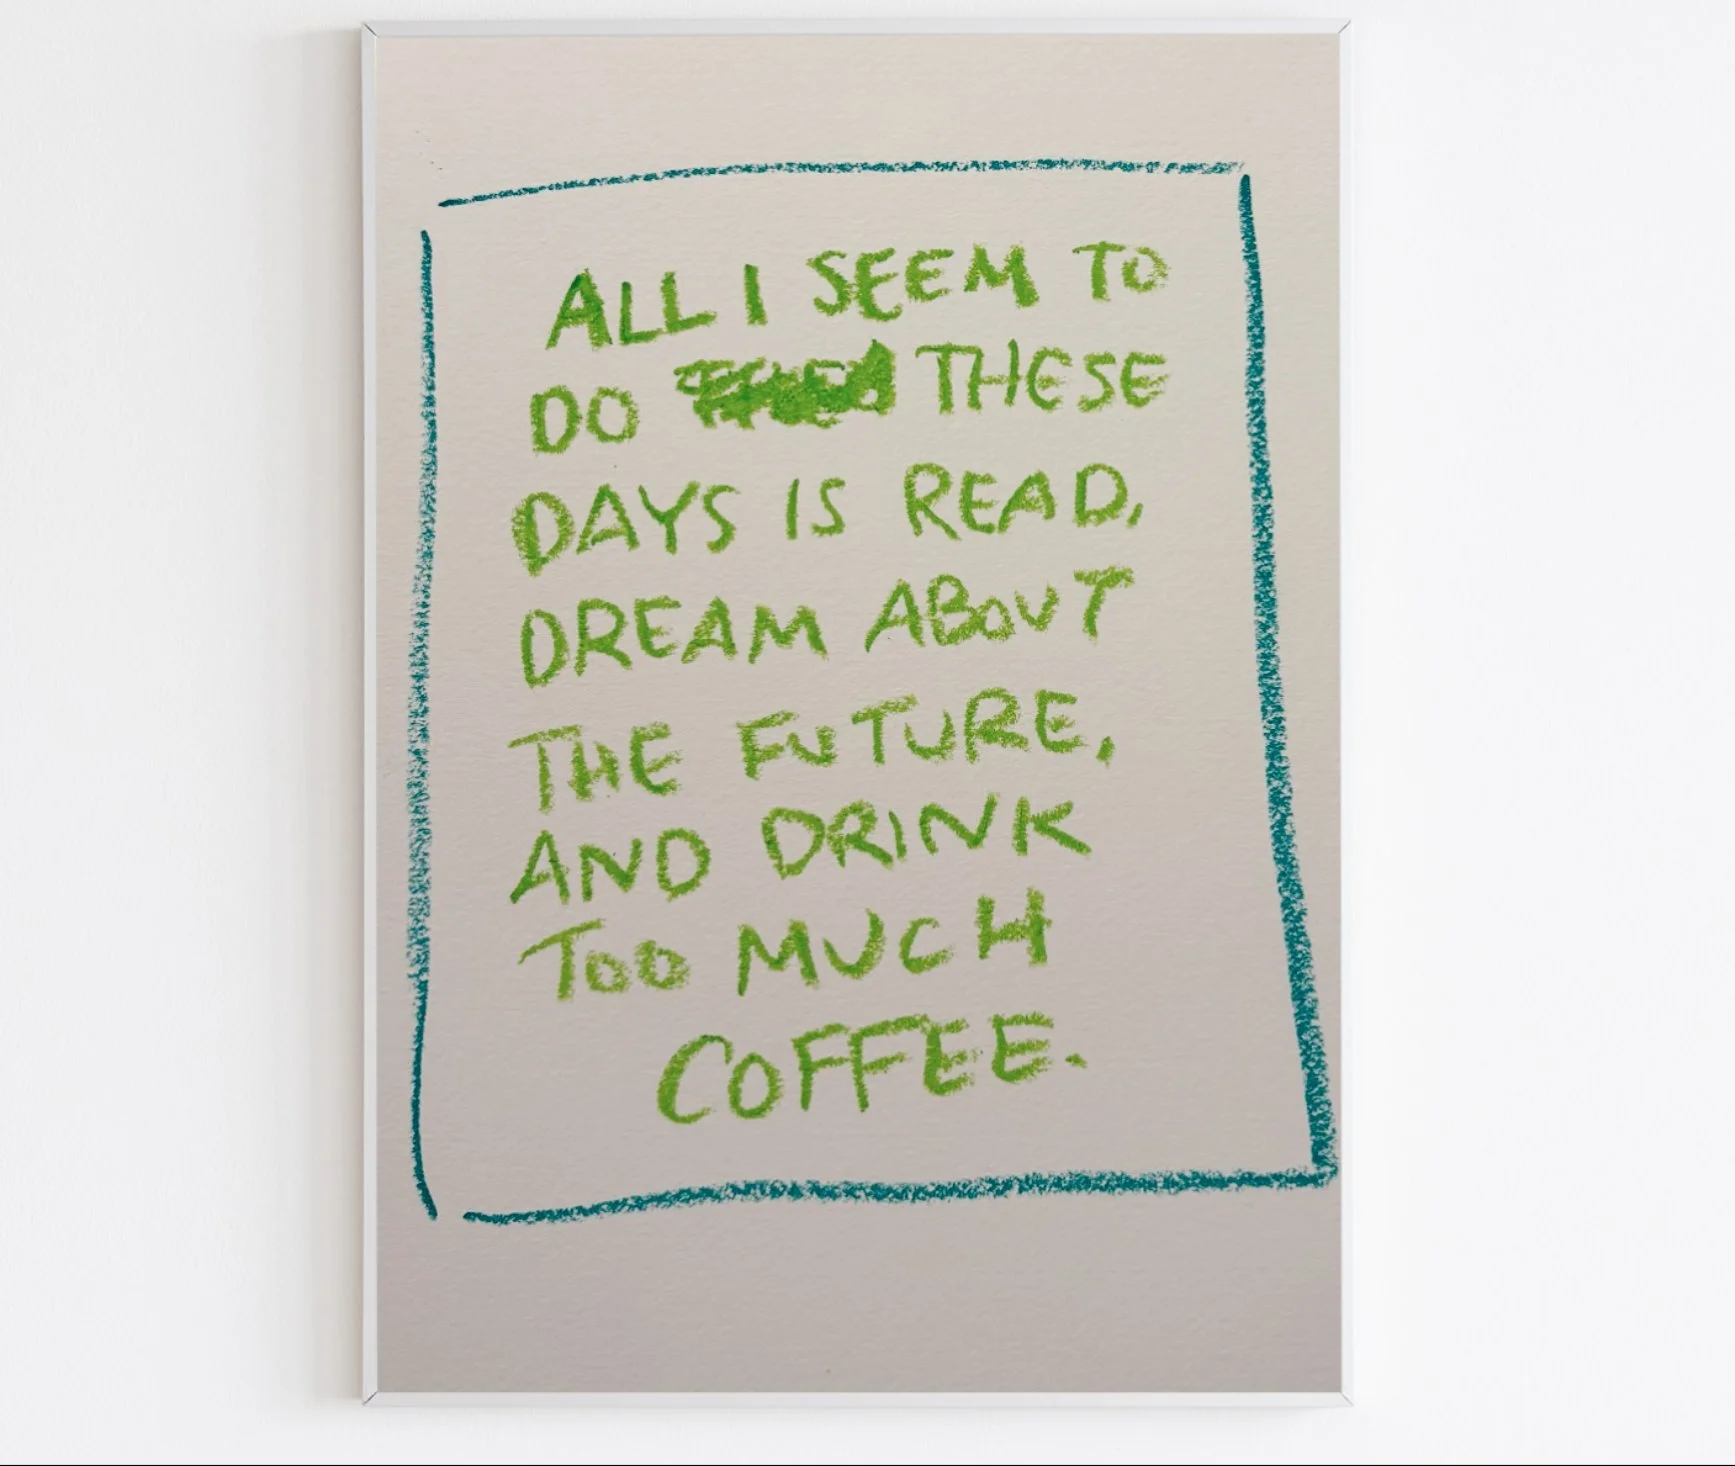 ALL I SEEM TO
DO THESE
DAYS IS READ,
DREAM ABOUT
THE FUTURE,
AND DRINK
TOO MUCH
COFFEE.